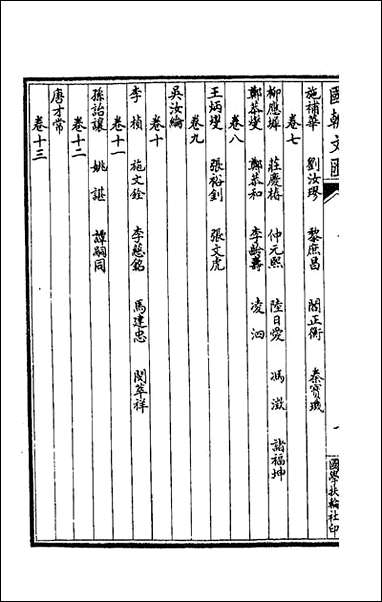 國朝文匯
國學扶輪社印
施補華 劉汝璆 黎庶昌 閻正衡 秦寶璣
卷七
柳應墀 莊慶椿 仲元熙 陸日愛 馮澂 諸福坤
鄭恭燮 鄭恭和 李齡壽 凌泗
卷八
王炳燮 張裕釗 張文虎
卷九
吳汝綸
卷十
李楨 施文銓 李慈銘 馬建忠 閔萃祥
卷十一
孫詒讓 姚諶 譚嗣同
卷十二
唐才常
卷十三